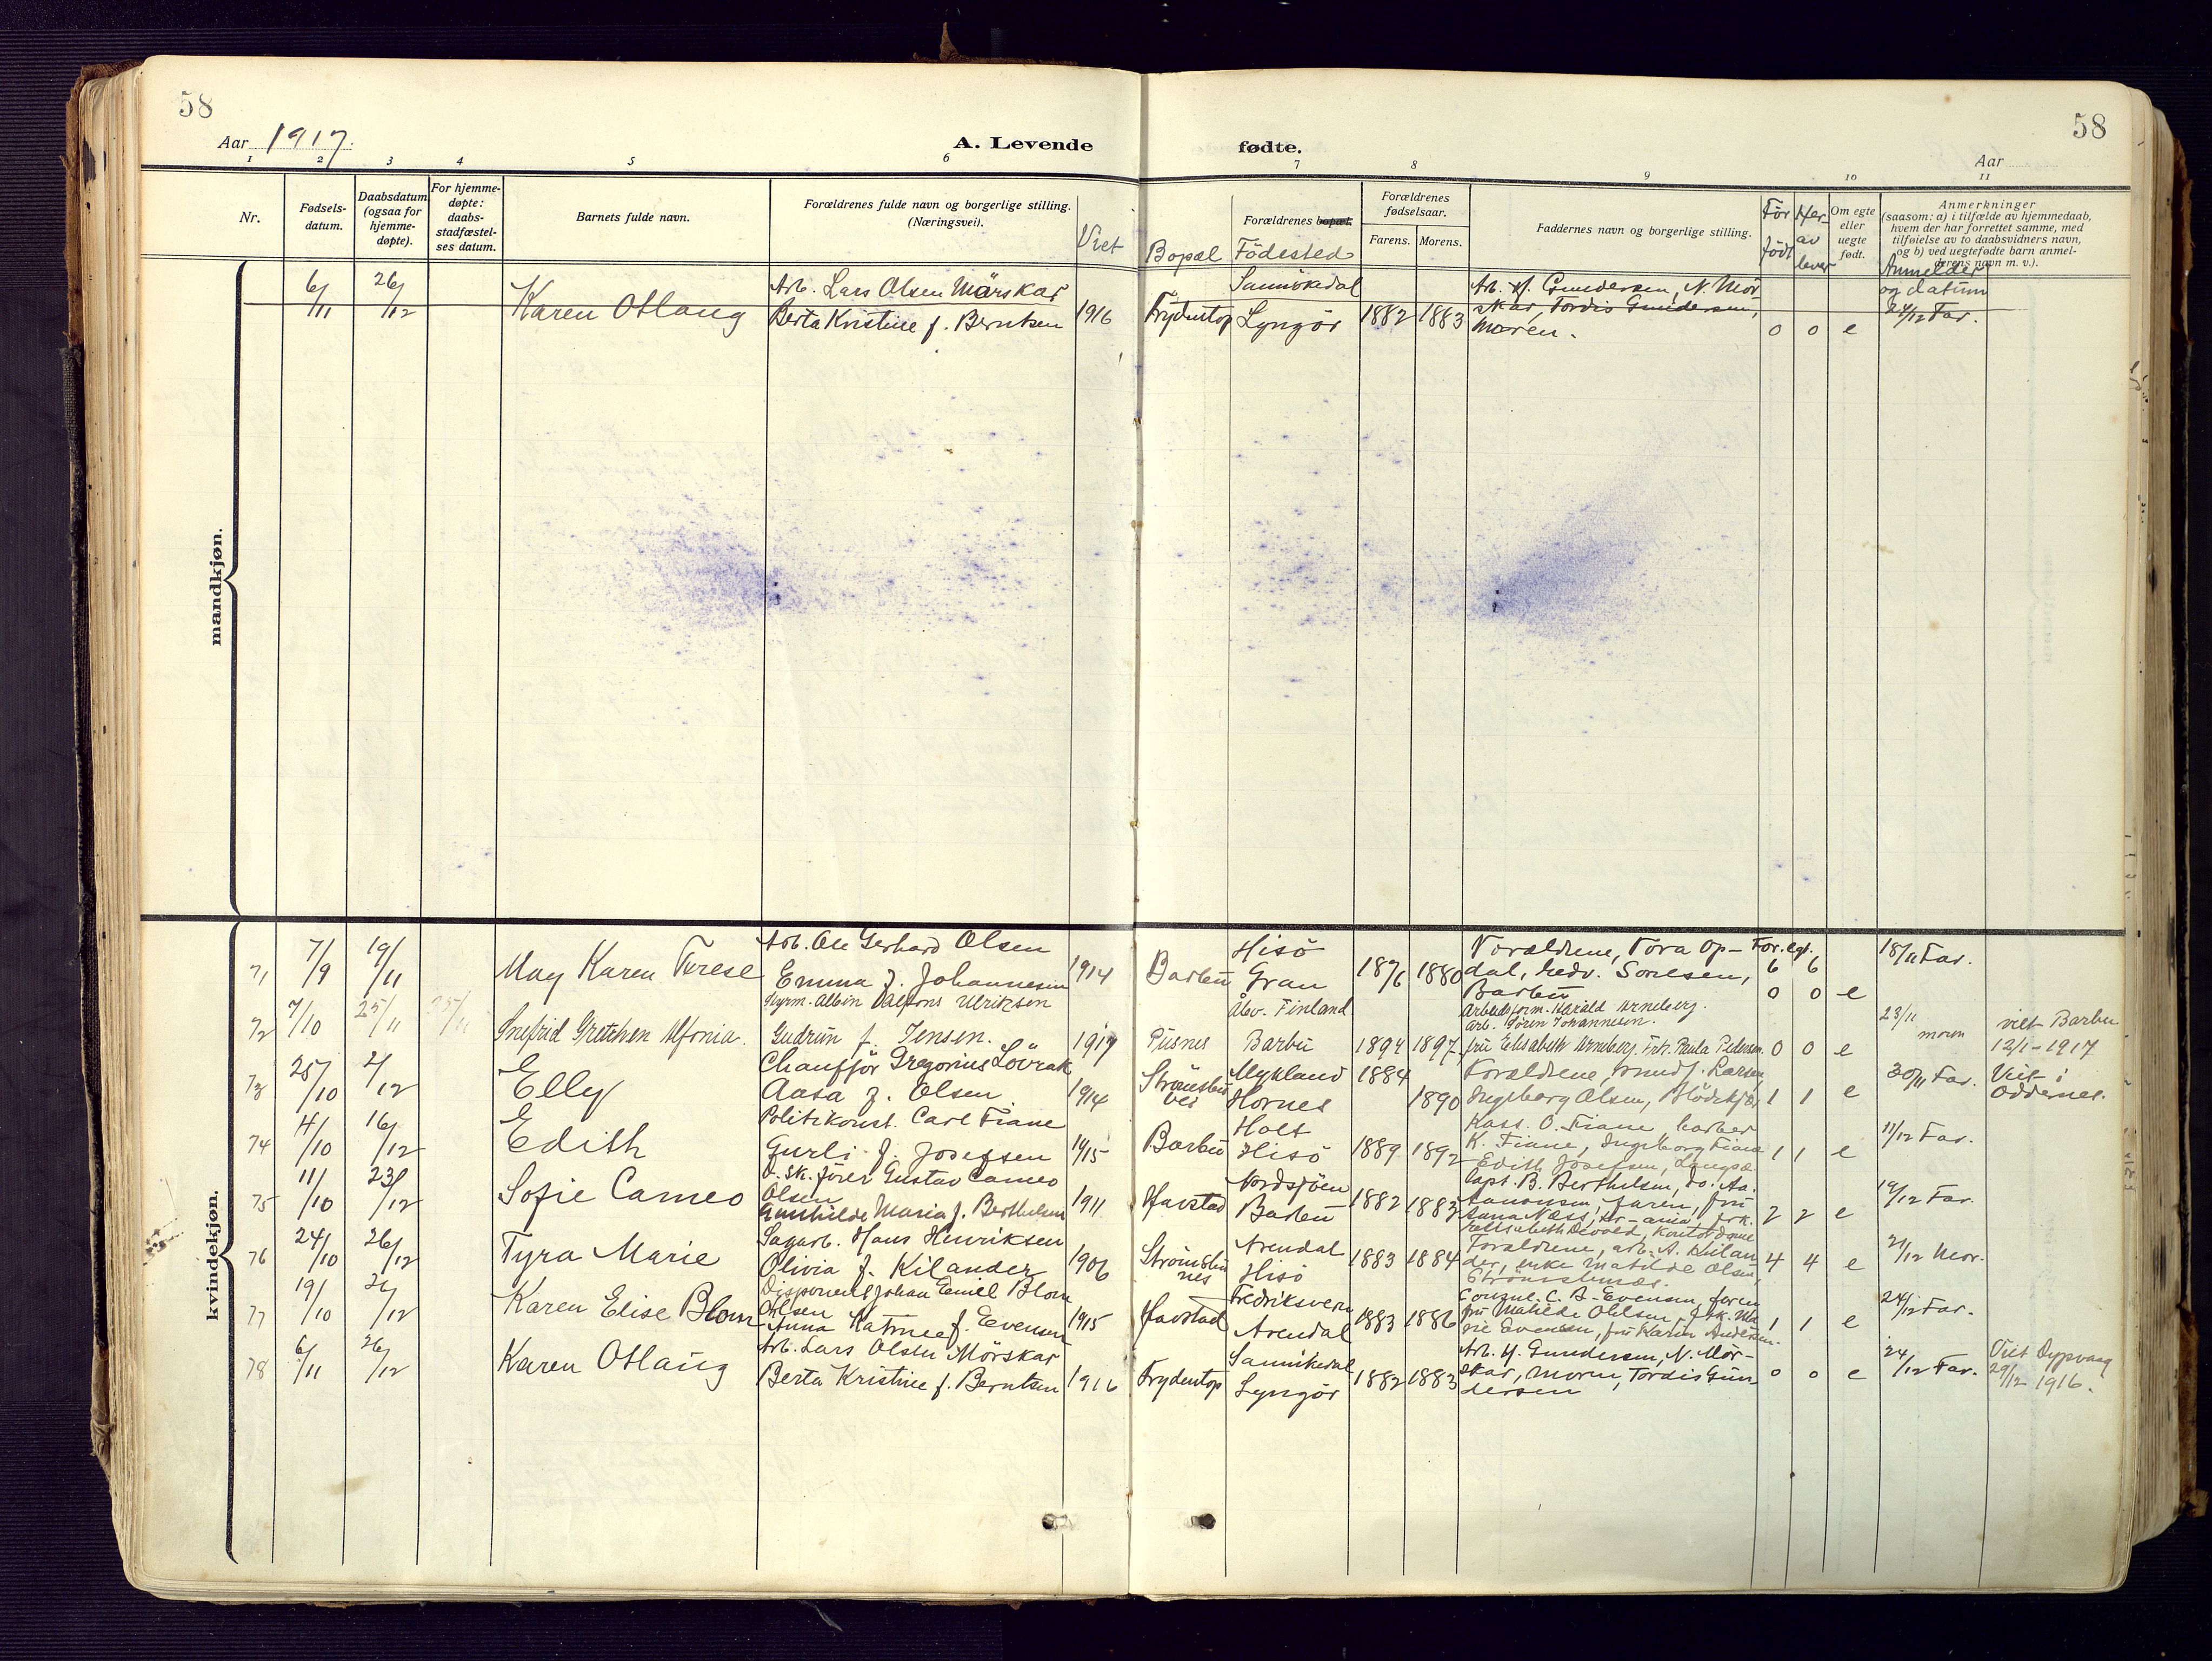 58
58
Aar 1917.
A. Levende
fødte.
Aar
1 2 3 4 5 6 7 8 9 10 11
Nr.
Fødsels-
datum.
Daabsdatum
(ogsaa for
hjemme-
døpte).
For hjemme-
døpte:
daabs-
stadfæstel-
ses datum.
Barnets fulde navn.
Forældrenes fulde navn og borgerlige stilling.
(Næringsvei).
Viet
Bopæl
Forældrenes bopæl.
Födested
Forældrenes
fødselsaar.
Farens. Morens.
Faddernes navn og borgerlige stilling.
Før
født
Her-
av
lever
Om egte
eller
uegte
født.
Anmerkninger
(saasom: a) i tilfælde av hjemmedaab,
hvem der har forrettet samme, med
tilføielse av to daabsvidners navn,
og b) ved uegtefødte barn anmel-
derens navn m. v.).
Anmelder
og datum
mandkjøn.
6/11 26/12 Karen Otlaug
Arb. Lars Olsen Mörskar
Berta Kristine f. Berntsen 1916
Frydentop
Sannikedal
Lyngör 1882 1883
Arb. H. Gundersen, N. Mör-
skar, Tordis Gundersen,
Moren. 0 0 e 24/12 Far.
kvindekjøn.
71 7/9 19/11 May Karen Terese
Arb. Ole Gerhard Olsen
Emma f. Johannesen 1914
Barbu
Hisö
Gran 1876 1880
Forældrene, Tora Op-
dal, Sorensen,
Barbu
For. egt.
6 6
0 0 e 18/11 Far.
72 7/10 25/11 25/11 Snefrid Gretchen Alfonia.
Styrm. Albin Ulriksen
Gudrun f. Jensen. 1917
Pusnes
Åbo. Finland
Barbu 1894 1897
Arbeidsform. Harald Arneberg.
Arb. Sören Johannesen.
fru Elisabeth Arneberg. Frk. Paula Pedersen. 0 0 e 23/11 moren
viet Barbu
12/1-1917
73 25/10 2/12 Elly
Chauffør Gregorius Lövrak
Aasa f. Olsen. 1914
Mykland
Hornes 1884 1890
Forældrene, Larsen,
Ingeborg Olsen, 1 1 e 30/11 Far.
Viet i
Oddernes.
74 4/10 16/12 Edith
Politikonst. Carl Fiane
Gurli f. Josefsen 14/15
Barbu
Holt
Hisö 1889 1892
Kass. O. Fiane, barber
K. Fiane, Ingeborg Fiane
Edith Josefsen, 1 1 e 11/12 Far.
75 11/10 23/12 Sofie Cameo
Gustav Cameo
Olsen
Gunhilde Maria f. Berthelsen 1911
Havstad
Nordsjöen
Barbu 1882 1883
Capt. B. Berthelsen, do. Aa.
Aanonsen, faren, fru
Anna Næss, Kr-ania, frk.
Elisabeth Kontordame 2 2 e 19/12 Far.
76 24/10 26/12 Tyra Marie
Sagarb. Hans Henriksen
Olivia f. Kilander 1906
Arendal
Hisö 1883 1884
Forældrene, arb. A. Kilan-
der, enke Matilde Olsen,
4 4 e 21/12 Mor.
77 19/10 26/12 Karen Elise Blom
Disponent Johan Emil Blom
Ohlsen
Anna Katrine f. Evensen 1915
Havstad
Fredriksvern
Arendal 1883 1886
Consul. C. B. Evensen, faren
fru Matilde Ohlsen, frk. Ma-
rie Evensen, fru Karin Andersen. 1 1 e 24/12 Far.
78 6/11 26/12 Karen Otlaug
Arb. Lars Olsen Mörskar
Berta Kristine f. Berntsen 1916
Frydentop
Sannikedal
Lyngör 1882 1883
Arb. H. Gundersen, N. Mör-
skar, moren, Tordis Gun-
dersen 0 0 e 24/12 Far.
Viet Dypvaag
29/12 1916.